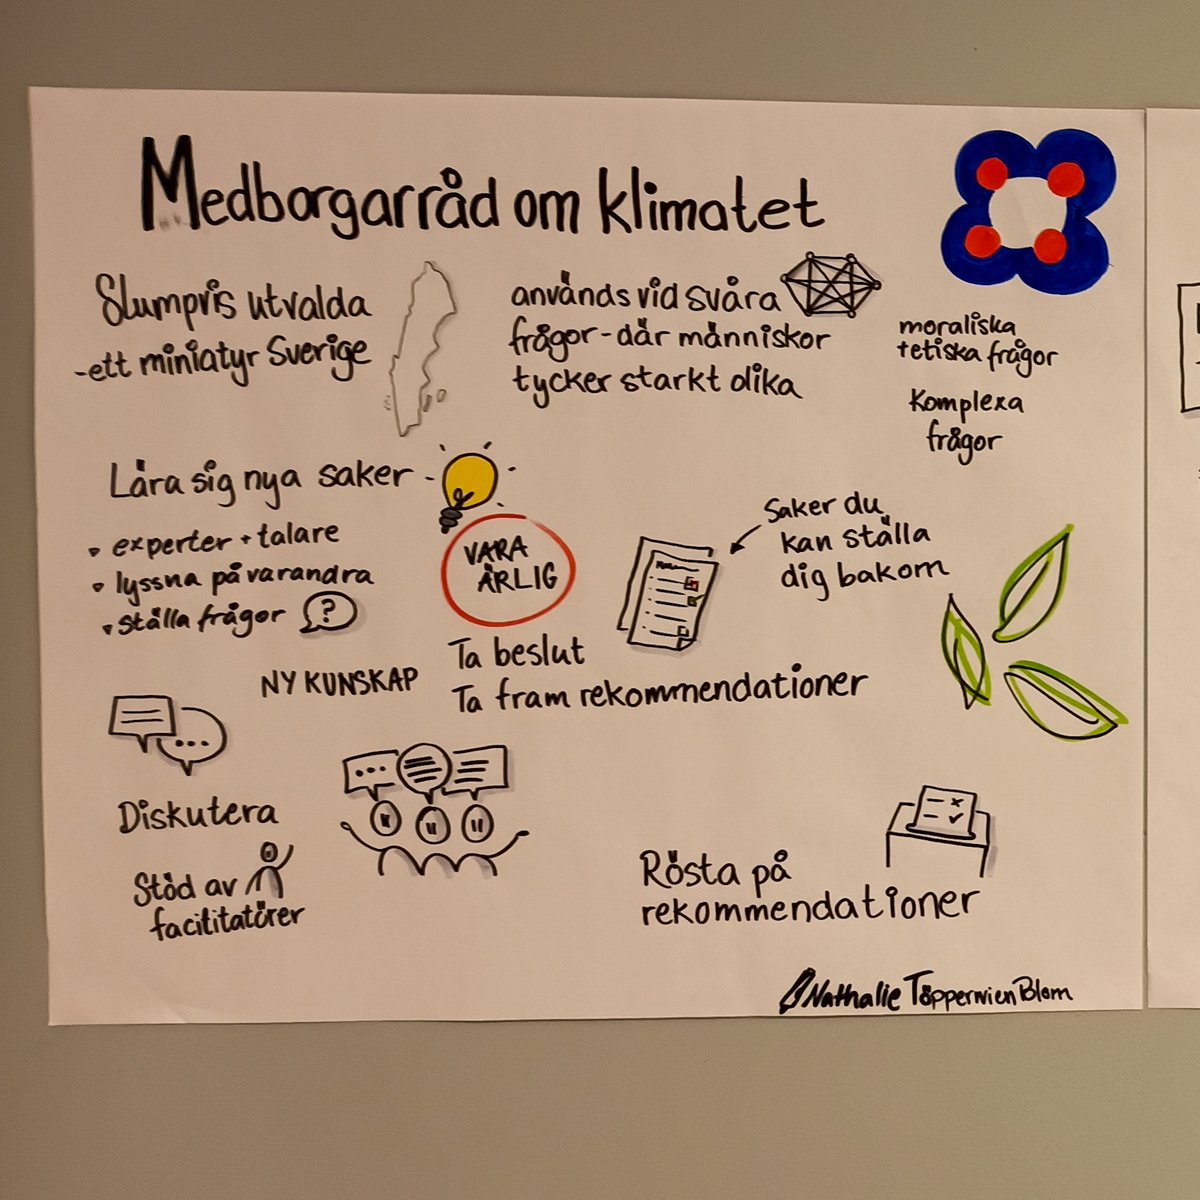 Medborgarråd om klimatet
Slumpvis utvalda
-ett miniatyr Sverige
används vid svåra
frågor - där människor
tycker starkt olika
moraliska
+etiska frågor
Komplexa
frågor
Lära sig nya saker
• experter + talare
• lyssna på varandra
• ställa frågor ?
NY KUNSKAP
VARA
ÄRLIG
Saker du
kan ställa
dig bakom
Ta beslut
Ta fram rekommendationer
Diskutera
Stöd av
facititatörer
Rösta på
rekommendationer
Nathalie Töpperwien Blom